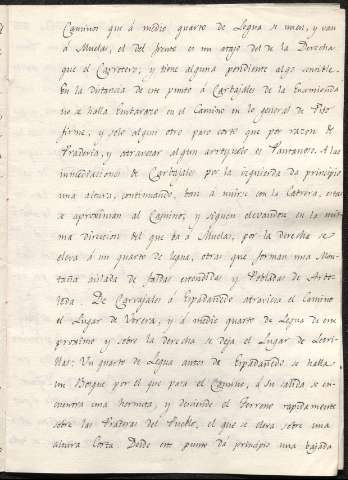 Caminos que á medio quarto de Legua se unen, y van
á Muelas, el del frente es un atajo del de la Derecha
que el Carretero; y tiene alguna pendiente algo sensible.
En la distancia de este punto á Carbajales de la Encomienda
no se halla Embarazo en el Camino en lo general de Piso
firme, y solo algun otro paso corto que por razon de
Praderia, y atravesar algun arroyuelo es Pantanoso. A las
inmediaciones de Carbajales por la izquierda dá principio
una altura, continuando, ban á unirse con la Cabrera, estas
se aproximan al Camino, y siguen elevandose en la mis-
ma direccion del que bá á Muelas, por la derecha se
eleva á un quarto de legua, otras que forman una Mon-
taña aislada de faldas estendidas y Pobladas de Arbo-
leda. De Carvajales á Espadañedo atraviesa el Camino
el Lugar de Utrera, y á medio quarto de Legua de este
proximo y sobre la derecha se deja el Lugar de Letri-
llas: Un quarto de Legua antes de Espadañedo se halla
un Bosque por el que pasa el Camino, á su salida se en-
cuentra una hermita, y desciende el Terreno rapidamente
sobre las Praderas del Pueblo, el que se eleva sobre una
altura Corta. Desde este punto dá principio una bajada